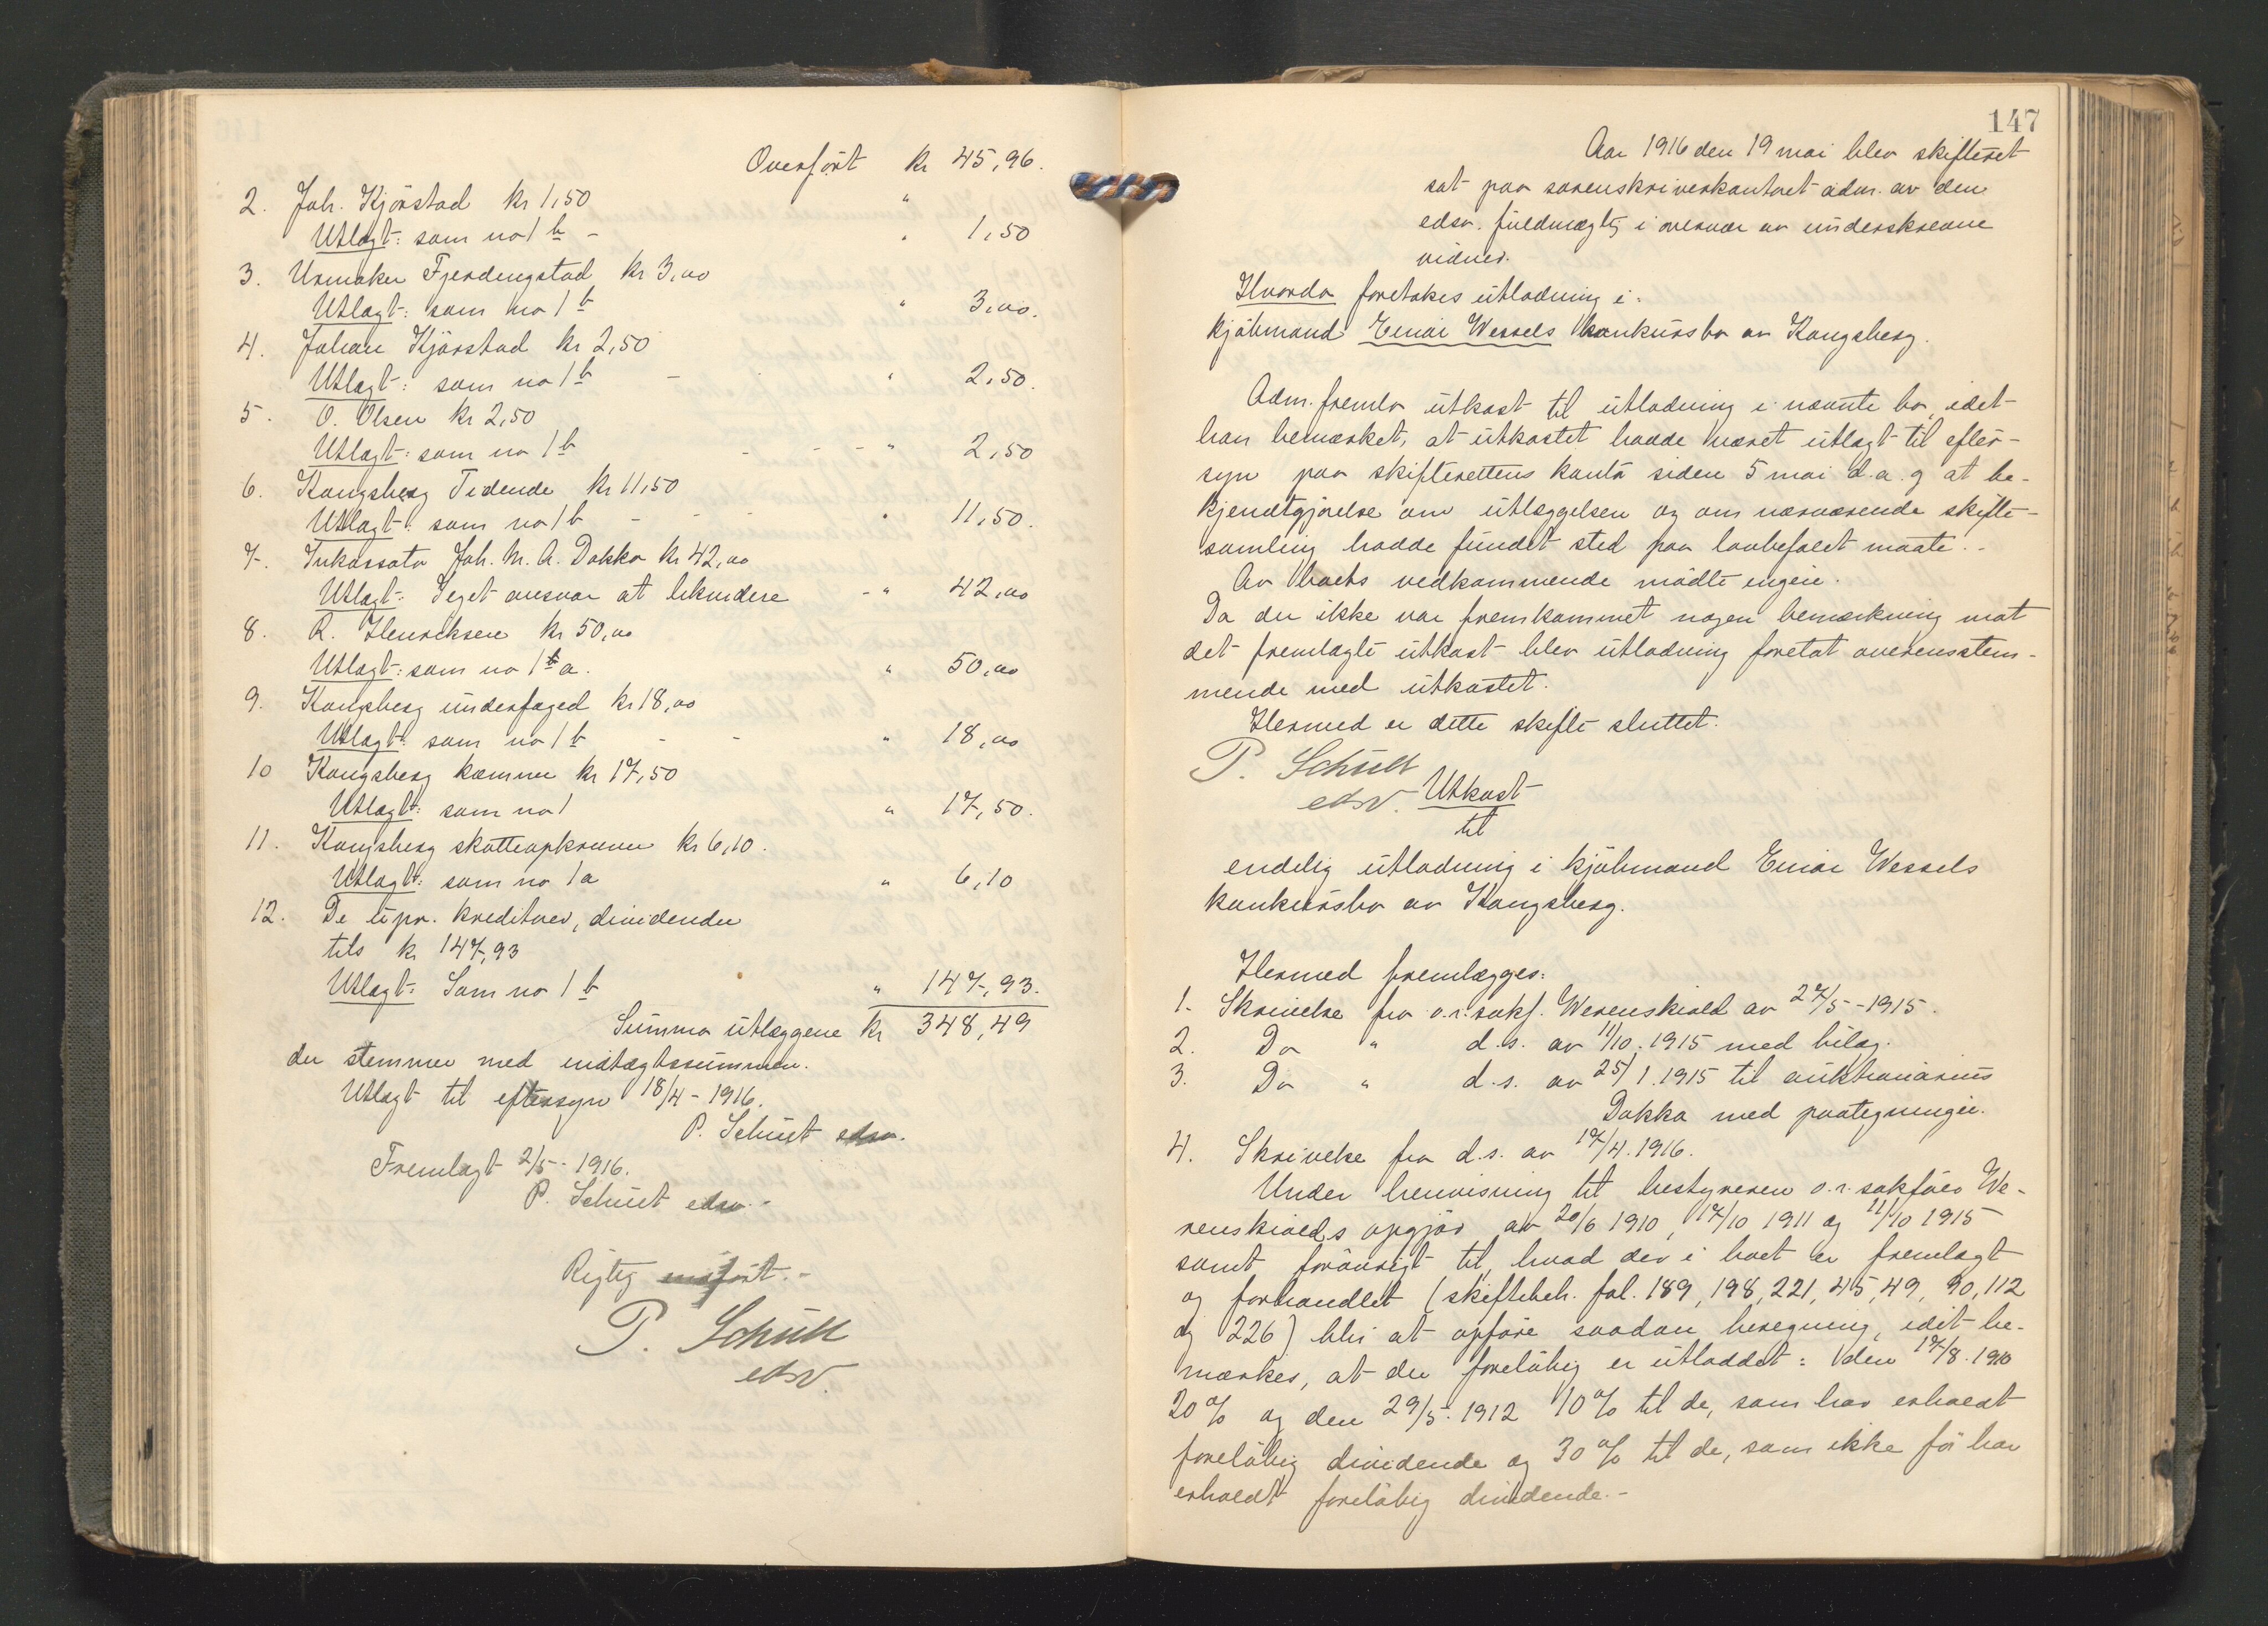 Overført kr 45,96.
2. Joh. Kjörstad kr 1,50 "
Utlagt: som no 1 b - " 1,50
3. Urmaker Fjerdengstad kr 3,00
Utlagt: som no 1 b " 3,00.
4. Johan Kjörstad kr 2,50
Utlagt: som no 1 b - " 2,50.
5. O. Olsen kr 2,50
Utlagt: som no 1 b - - - " 2,50
6. Kongsberg Tidende kr 11,50
Utlagt: som no 1 b - - - " 11,50.
7. Inkassato Joh. M. A. Dokka kr 42,00
Utlagt: I eget ansvar at likvidere - " 42,00
8. R. Henriksen kr 50,00
Utlagt: som no 1 a. " 50,00
9. Kongsberg underfoged kr 18,00
Utlagt: som no 1 b - - " 18,00
10 Kongsberg kæmner kr 17,50
Utlagt: som no 1 " 17,50.
11. Kongsberg skatteopkræver kr 6,10.
Utlagt: som no 1 a " 6,10
12. De upr. kreditorer, dividender
tils kr 147,93
Utlagt: Som no 1 b " 147,93.
Summa utlæggene kr 348,49
der stemmer med indtægtssummen.
Utlagt til eftersyn 18/4 - 1916.
P. Schütt edsv.
Fremlagt 2/5 - 1916.
P. Schütt edsv. -
Rigtig indført. -
P. Schütt
edsv.
147
Aar 1916 den 19 mai blev skifteret
sat paa sorenskriverkontoret adm. av den
edsv. fuldmægtig i overvær av underskrevne
vidner.
Hvorda foretokes utlodning i:
kjøbmand Einar Wessels konkursbo av Kongsberg.
Adm. fremla utkast til utlodning i nævnte bo, idet
han bemærket, at utkastet hadde været utlagt til efter-
syn paa skifterettens kontor siden 5 mai d.a. og at be-
kjendtgjørelse om utlæggelsen og om nærværende skifte-
samling hadde fundet sted paa lovbefalet maate. -
Av boets vedkommende mødte ingen.
Da der ikke var fremkommet nogen bemærkning mot
det fremlagte utkast blev utlodning foretat overensstem-
mende med utkastet.
Hermed er dette skifte sluttet.
P. Schütt
edsv.
Utkast
til
endelig utlodning i kjøbmand Einar Wessels
konkursbo av Kongsberg.
Hermed fremlægges:
1. Skrivelse fra o.r.sakf. Werenskiold av 27/5 - 1915.
2. Do " d.s. av 11/10. 1915 med bilag.
3. Do " d.s. av 25/1. 1915 til auktionarius
Dokka med paategninger.
4. Skrivelse fra d.s. av 17/4. 1916.
Under henvisning til bestyreren o.r. sakfører We-
renskiolds opgjør av 20/6 1910, 17/10 1911 og 11/10 1915
samt forøvrigt til, hvad der i boet er fremlagt
og forhandlet (skiftebeh. fol. 189, 198, 221, 45, 49, 90, 112
og 226) blir at opføre saadan beregning, idet be-
mærkes, at der foreløbig er utloddet: den 17/8. 1910
20% og den 29/5. 1912 10% til de, som har erholdt
foreløbig dividende og 30% til de, som ikke før har
erholdt foreløbig dividende. -